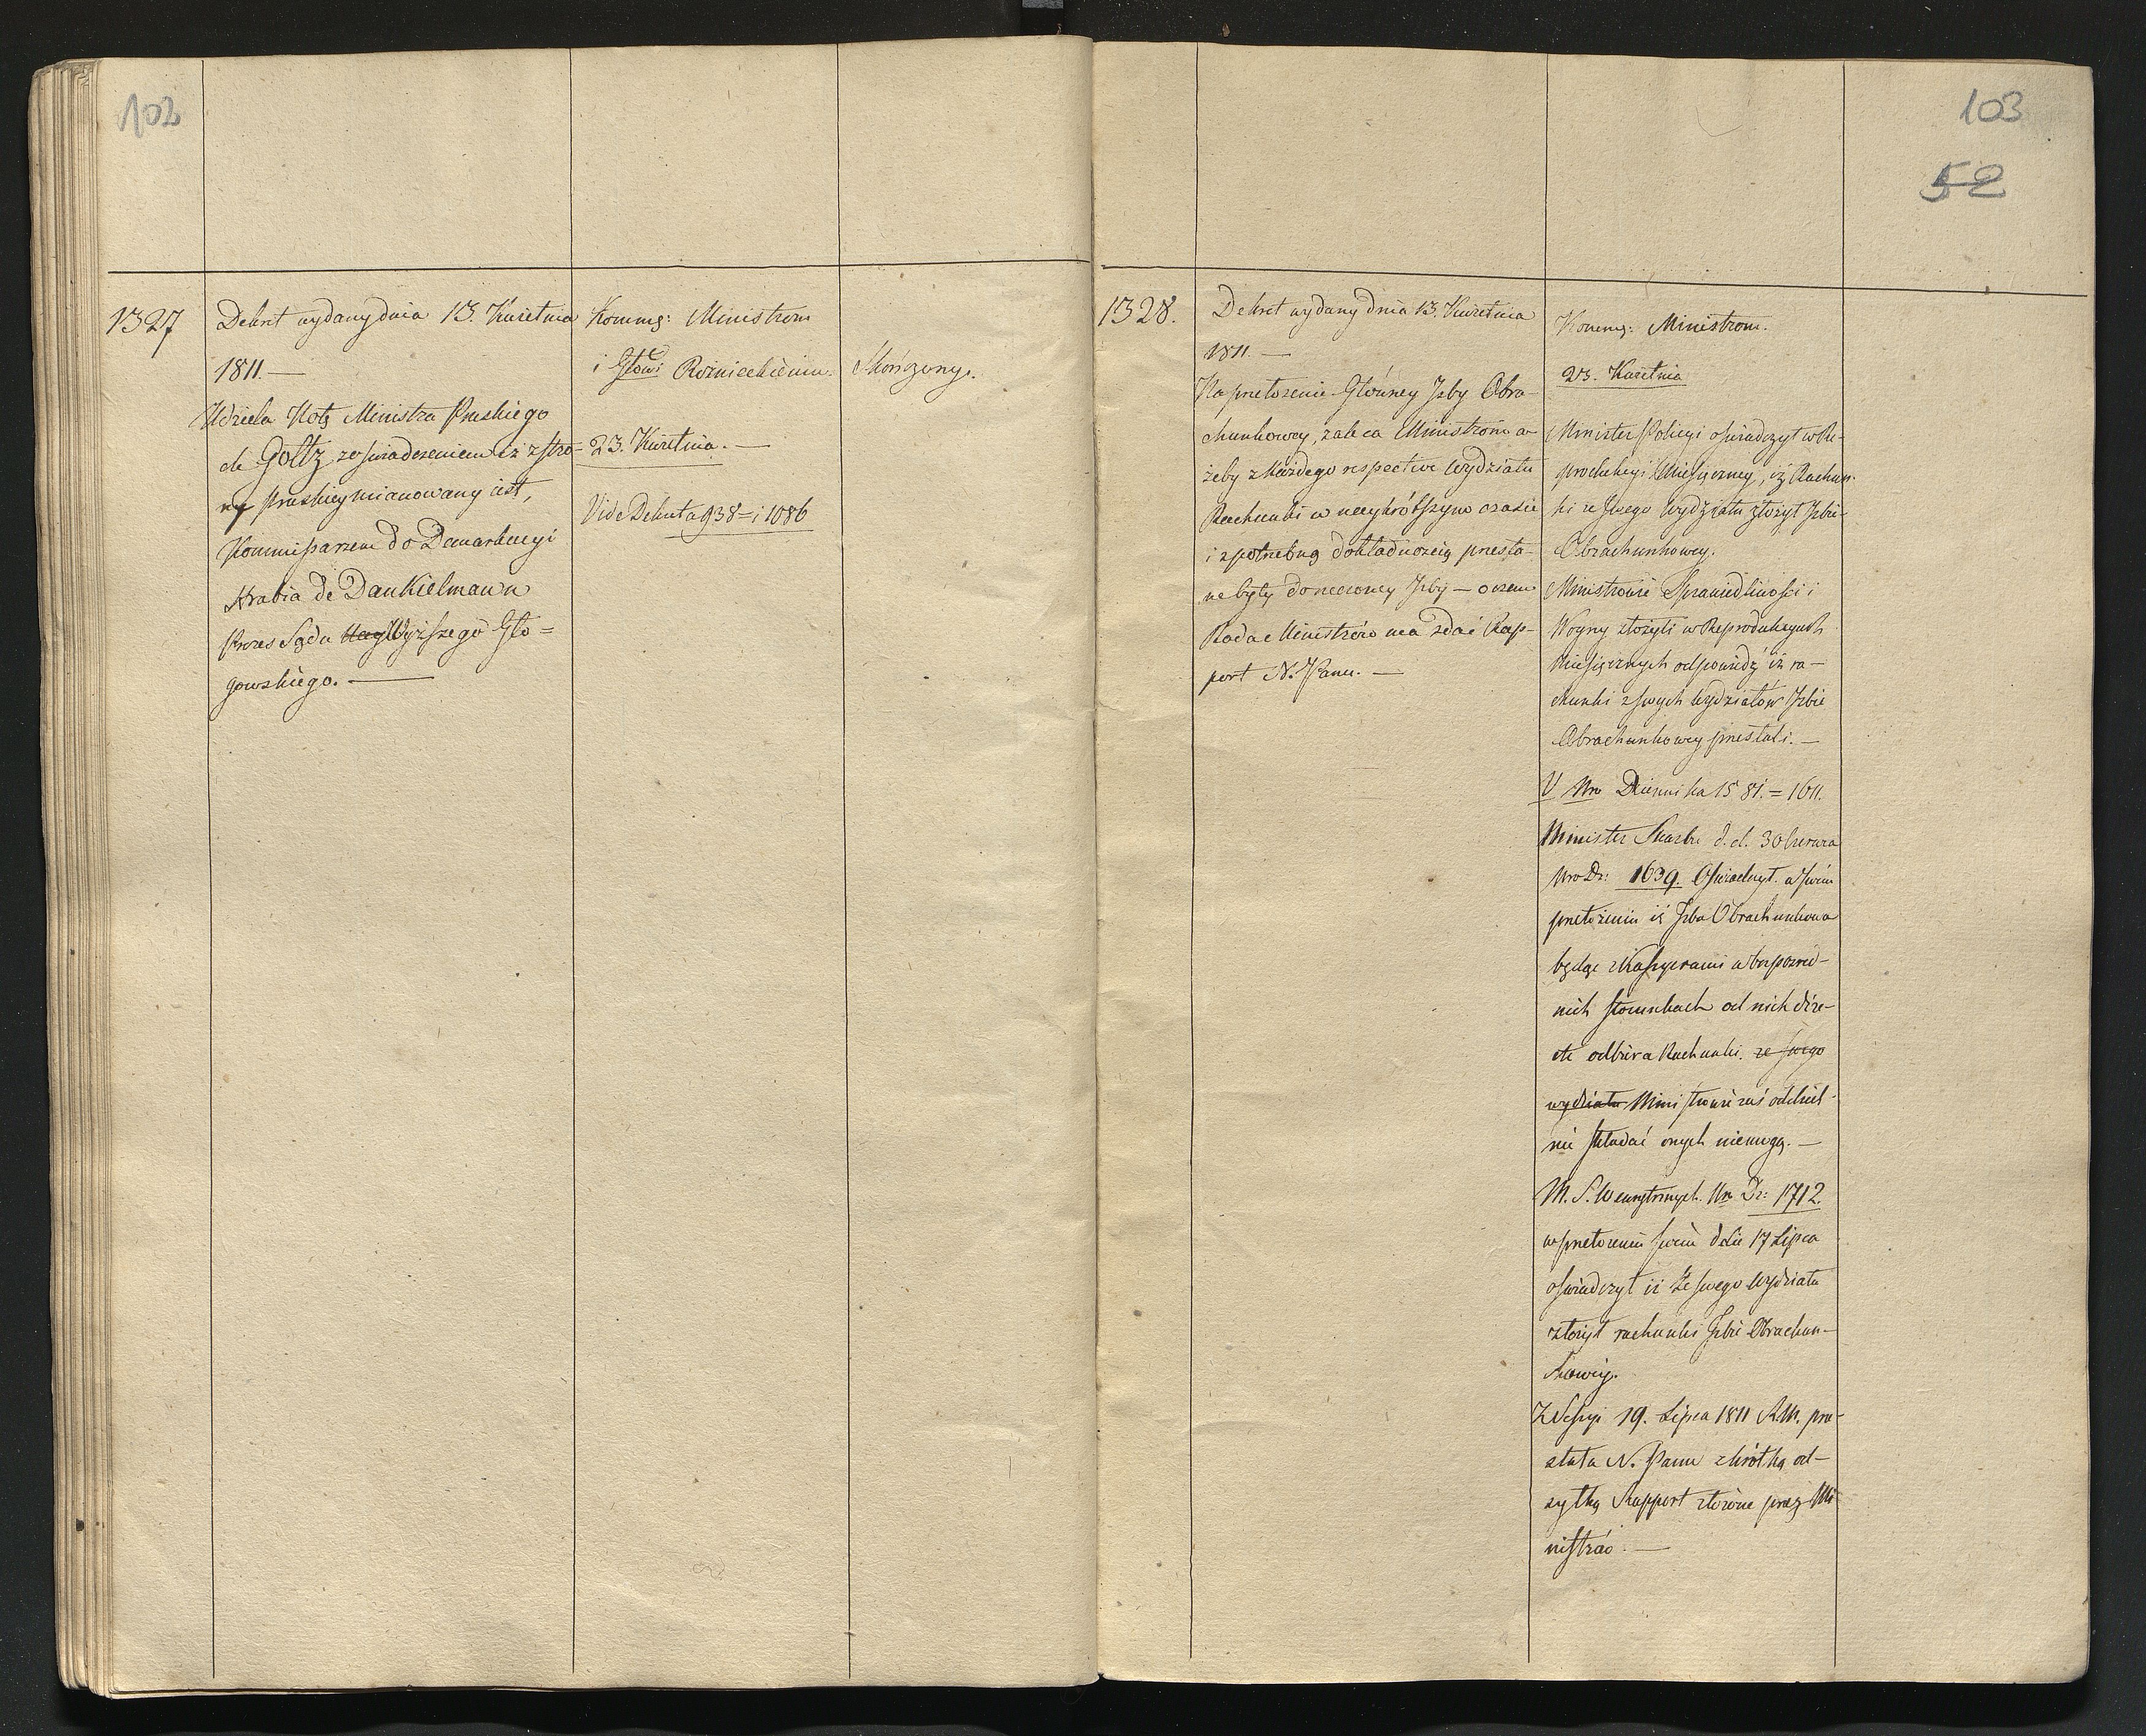 102
1327
Dekret wydany dnia 13. Kwietnia
1811. —
Udziela Notę Ministra Pruskiego
de Goltz zoświadczeniem iż zstro-
ny Pruskiey mianowany iest,
Kommissarzem do Demarkacyi
Hrabia de Dankielmann
Prezes Sądu Nay Wyższego Gło=
gowskiego. —
Kommg: Ministrom
i Głowi Roznieckiemu.
23. Kwietnia. —
Vide Dekreta 938 = i 1086
Skończony.
103
52
1328.
Dekret wydany dnia 13. Kwietnia
1811. —
Na przełożenie Główney Izby Obra-
chunkowey, zaleca Ministrom a-
żeby z każdego respective Wydziału
Rachunki w naykrótszym czasie
i z potrzebną dokładnością przesła-
ne były do rzeczoney Izby — o czem
Rada Ministrów ma zdać Rap-
port N. Panu. —
Kommg: Ministrom.
23. Kwietnia
Minister Policyi oświadczył w Re-
produkcyi Miesięczney, iż Rachun-
ki ze swego Wydziału złożył Izbie
Obrachunkowey.
Ministrowie Sprawiedliwości i
Woyny złożyli w Reprodukcyach
Miesięcznych odpowiedź iż ra-
chunki z swych Wydziałów Izbie
Obrachunkowey przesłali. —
V Nro Dziennika 1581. = 1611.
Minister Skarbu d. d. 30 Czerwca
Nro Dz: 1639. Oświadczył w swém
przełożeniu iż Izba Obrachunkowa
będąc z Kassyerami w bezpośred-
nich stosunkach od nich dire-
cte odbiera Rachunki. ze swego
wydziału Ministrowie zaś oddziel-
nie składać onych niemogą. —
M. S. Wewnętrznych. Nro Dz: 1712
w przełożeniu swém ddie 17 Lipca
oświadczył iż ze swego Wydziału
złożył rachunki Izbie Obrachun-
kowey.
Z Sessyi 19. Lipca 1811 R. M. prze-
słała N. Panu z krótką od-
zytką Rapport złożone przez Mi-
nistrów. —